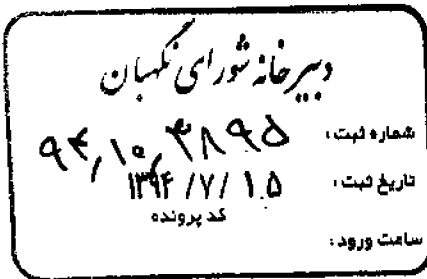 دبیرخانه شورای نگهبان
شماره ثبت: ۹۴,۱۰,۳۸۹۵
تاریخ ثبت: ۱۳۹۴/۷/۱۵
کد پرونده
ساعت ورود: